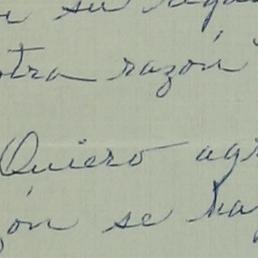 su
otra razón
Quiero agr
ón se ha